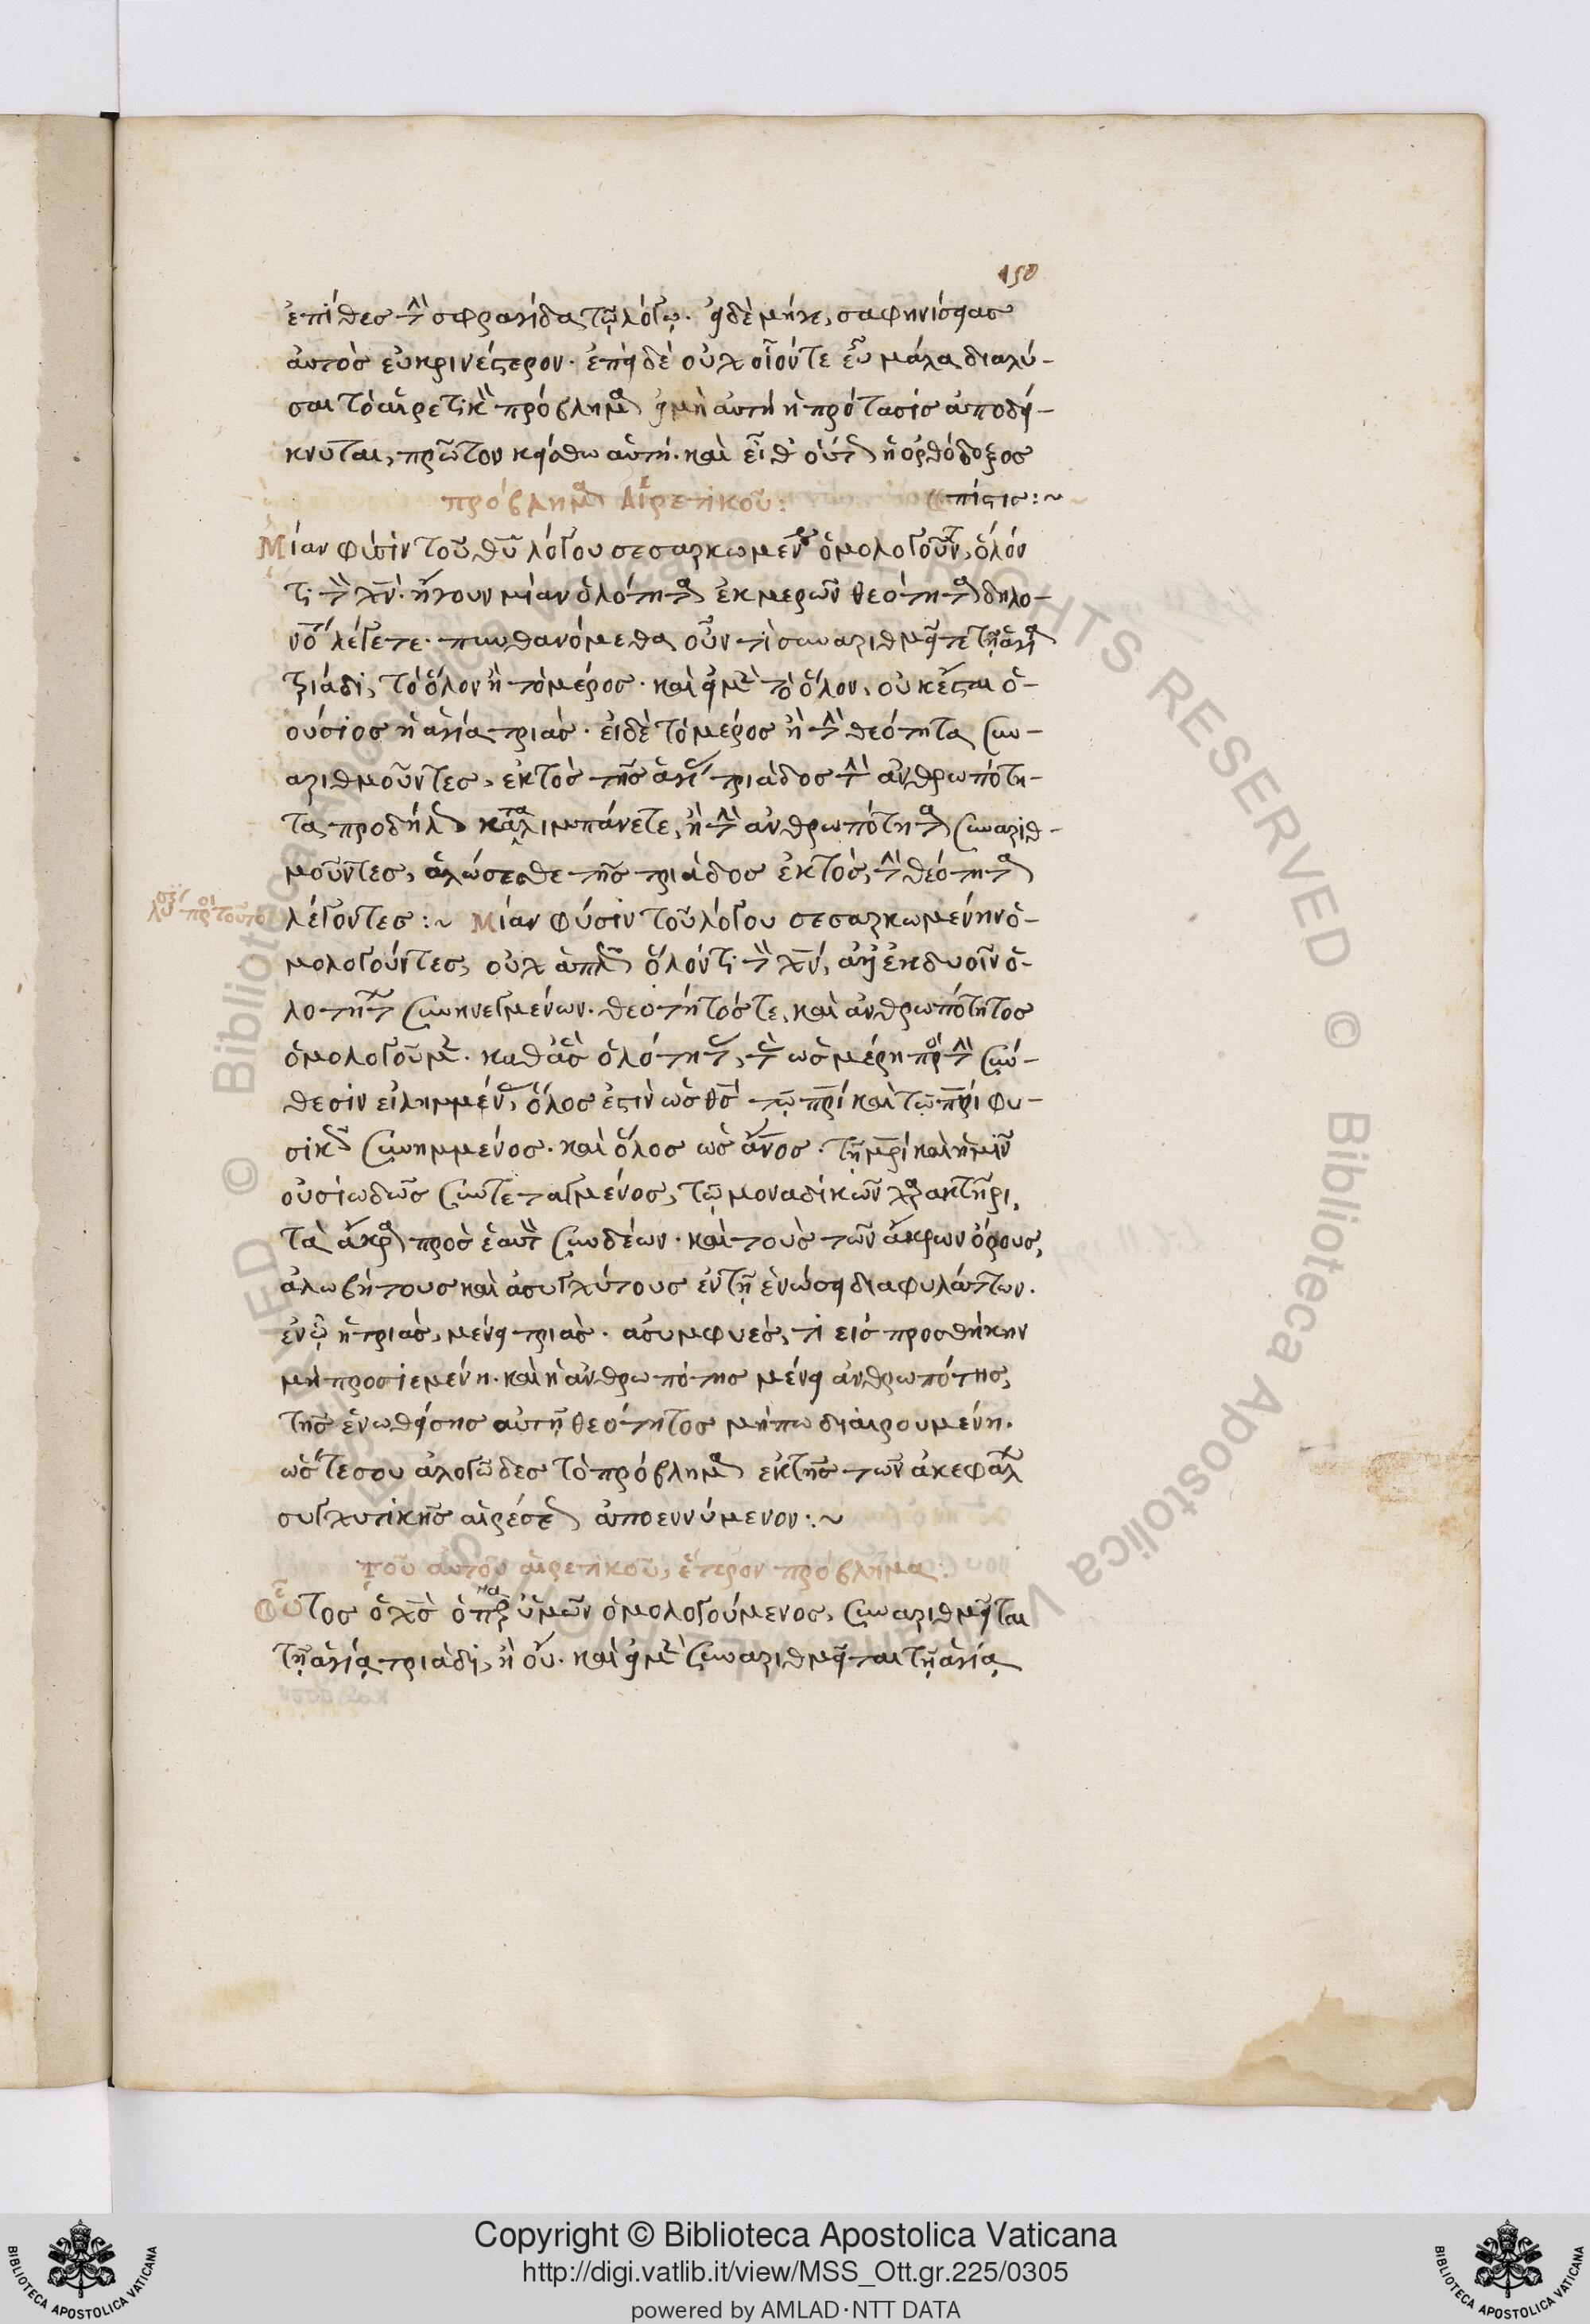 150
ἐπίθες τὴν σφραγίδα τῷ λόγῳ· εἰ δὲ μή γε, σαφηνίσεις
αὐτὸς εὐκρινέστερον· ἐπεὶ δὲ οὐχ οἷόν τε εὖ μάλα διαλύ-
σαι τὸ αἱρετικὸν πρόβλημα εἰ μὴ αὐτὴ ἡ πρότασις ἀποδεί-
κνυται, πρῶτον κείσθω αὐτή· καὶ εἶθ' οὕτως ἡ ὀρθόδοξος
πίστις:~
πρόβλημα Αἱρετικοῦ:
Μίαν φύσιν τοῦ θυ λόγου σεσαρκωμένην ὁμολογοῦντες, ὅλόν
τι τὸν χν· ἤγουν μίαν ὁλότητα ἐκ μερῶν θεότητα δηλο-
νότι λέγετε· πυνθανόμεθα οὖν τί συναριθμεῖτε τῇ ἁγίᾳ
τριάδι, τὸ ὅλον ἢ τὸ μέρος· καὶ εἰ μὲν τὸ ὅλον, οὐκ ἔσται ὁ-
ούσιος ἡ ἁγία τριάς· εἰ δὲ τὸ μέρος ἢ τὴν θεότητα συν-
αριθμοῦντες, ἐκτὸς τῆς ἁγίας τριάδος τὴν ἀνθρωπότη-
τα προδήλως καταλιμπάνετε, ἢ τὴν ἀνθρωπότητα συναριθ-
μοῦντες, ἁλώσεσθε τῆς τριάδος ἐκτὸς, τὴν θεότητα
λέγοντες:~ Μίαν φύσιν τοῦ λόγου σεσαρκωμένην ὁ-
μολογοῦντες, οὐχ ἁπλῶς ὅλόν τι τὸν χν, ἀλλ' ἐκ δυοῖν ὁ-
λοτήτων συνηνεγμένων· θεότητός τε, καὶ ἀνθρωπότητος
ὁμολογοῦμεν· καθ' ἃς ὁλότητας, τὰς ὡς μέρη πρὸς τὴν σύν-
θεσιν εἰλημμένας, ὅλος ἐστὶν ὡς θς τῷ πρι καὶ τῷ πνι φυ-
σικῶς συνημμένος· καὶ ὅλος ὡς ἄνος· τῇ μρι καὶ ἡμῖν
οὐσιωδῶς συντεταγμένος, τῷ μοναδικῶν χαρακτῆρι,
τὰ ἄκρα πρὸς ἑαυτὸν συνδέων· καὶ τοὺς τῶν ἄκρων ὅρους,
ἀλωβήτους καὶ ἀσυγχύτους ἐν τῇ ἑνώσει διαφυλάττων·
ἐν ᾧ ἡ τριὰς, μένει τριάς· ἀσυμφυές, τι εἰς προσθήκην
μὴ προσιεμένη· καὶ ἡ ἀνθρωπότης μένει ἀνθρωπότης,
τῆς ἑνωθείσης αὐτῇ θεότητος μήπω διαιρουμένη·
ὥστέ σου ἀλογῶδες τὸ πρόβλημα ἐκ τῆς τῶν ἀκεφάλων
συγχυτικῆς αἱρέσεως ἀποεννύμενον:~
τοῦ αὐτοῦ αἱρετικοῦ, ἕτερον πρόβλημα:
Οὗτος ὁ χς ὁ παρ' ὑμῶν ὁμολογούμενος, συναριθμεῖται
τῇ ἁγίᾳ τριάδι, ἢ οὔ· καὶ εἰ μὲν συναριθμεῖται τῇ ἁγίᾳ
Copyright © Biblioteca Apostolica Vaticana
http://digi.vatlib.it/view/MSS_Ott.gr.225/0305
powered by AMLAD·NTT DATA